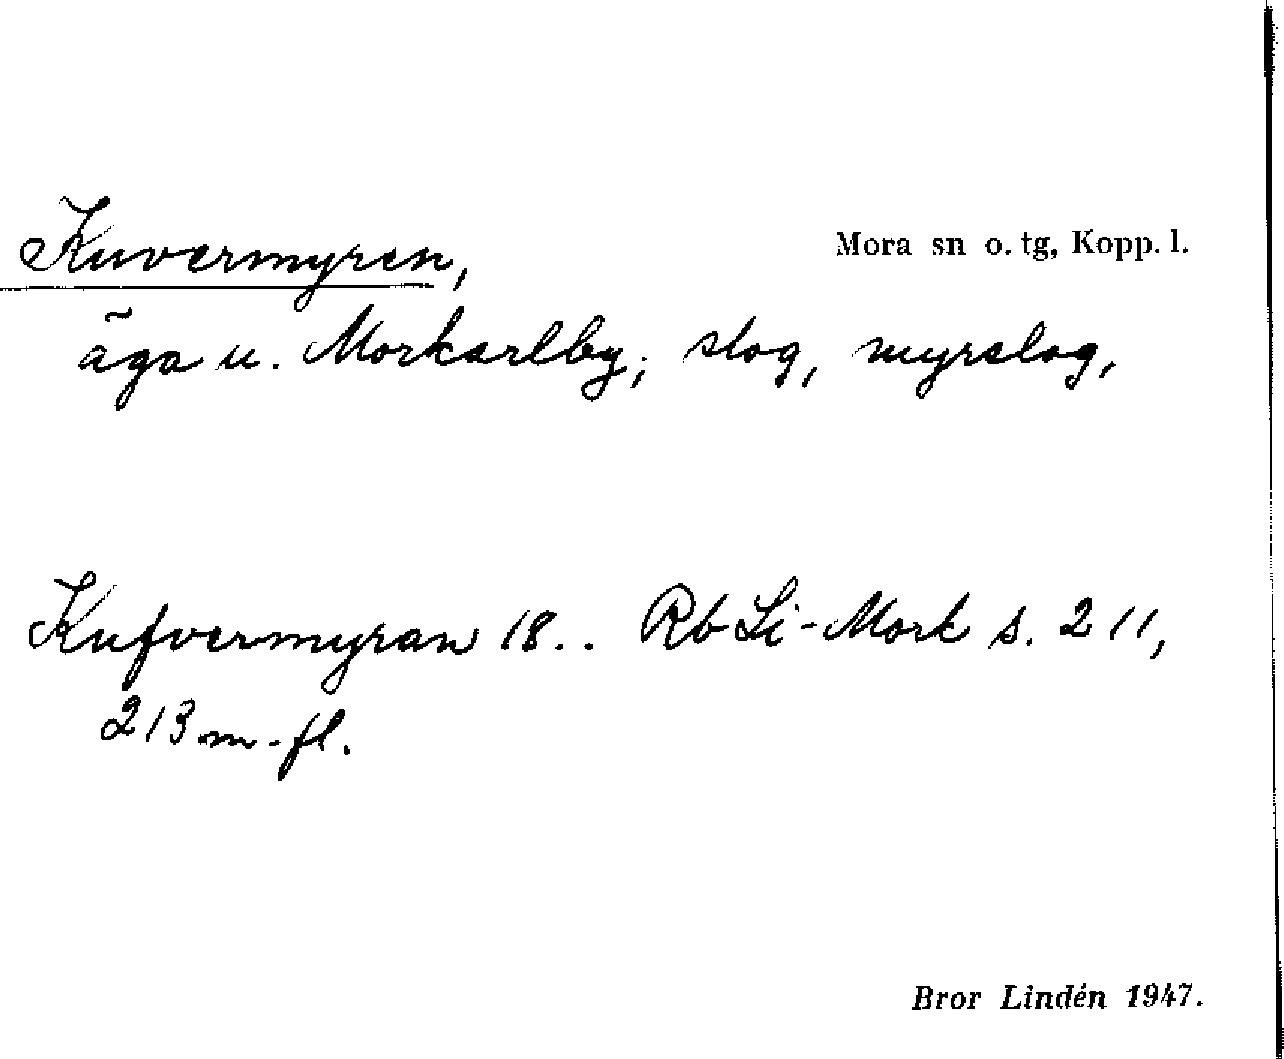 Kuvermyren,
Mora sn o. tg, Kopp. l.
äga u. Morkarlby; slog, myrslog,
Kufvermyran 18.. Rb Li-Mork s. 211,
213 m.fl.
Bror Lindén 1947.